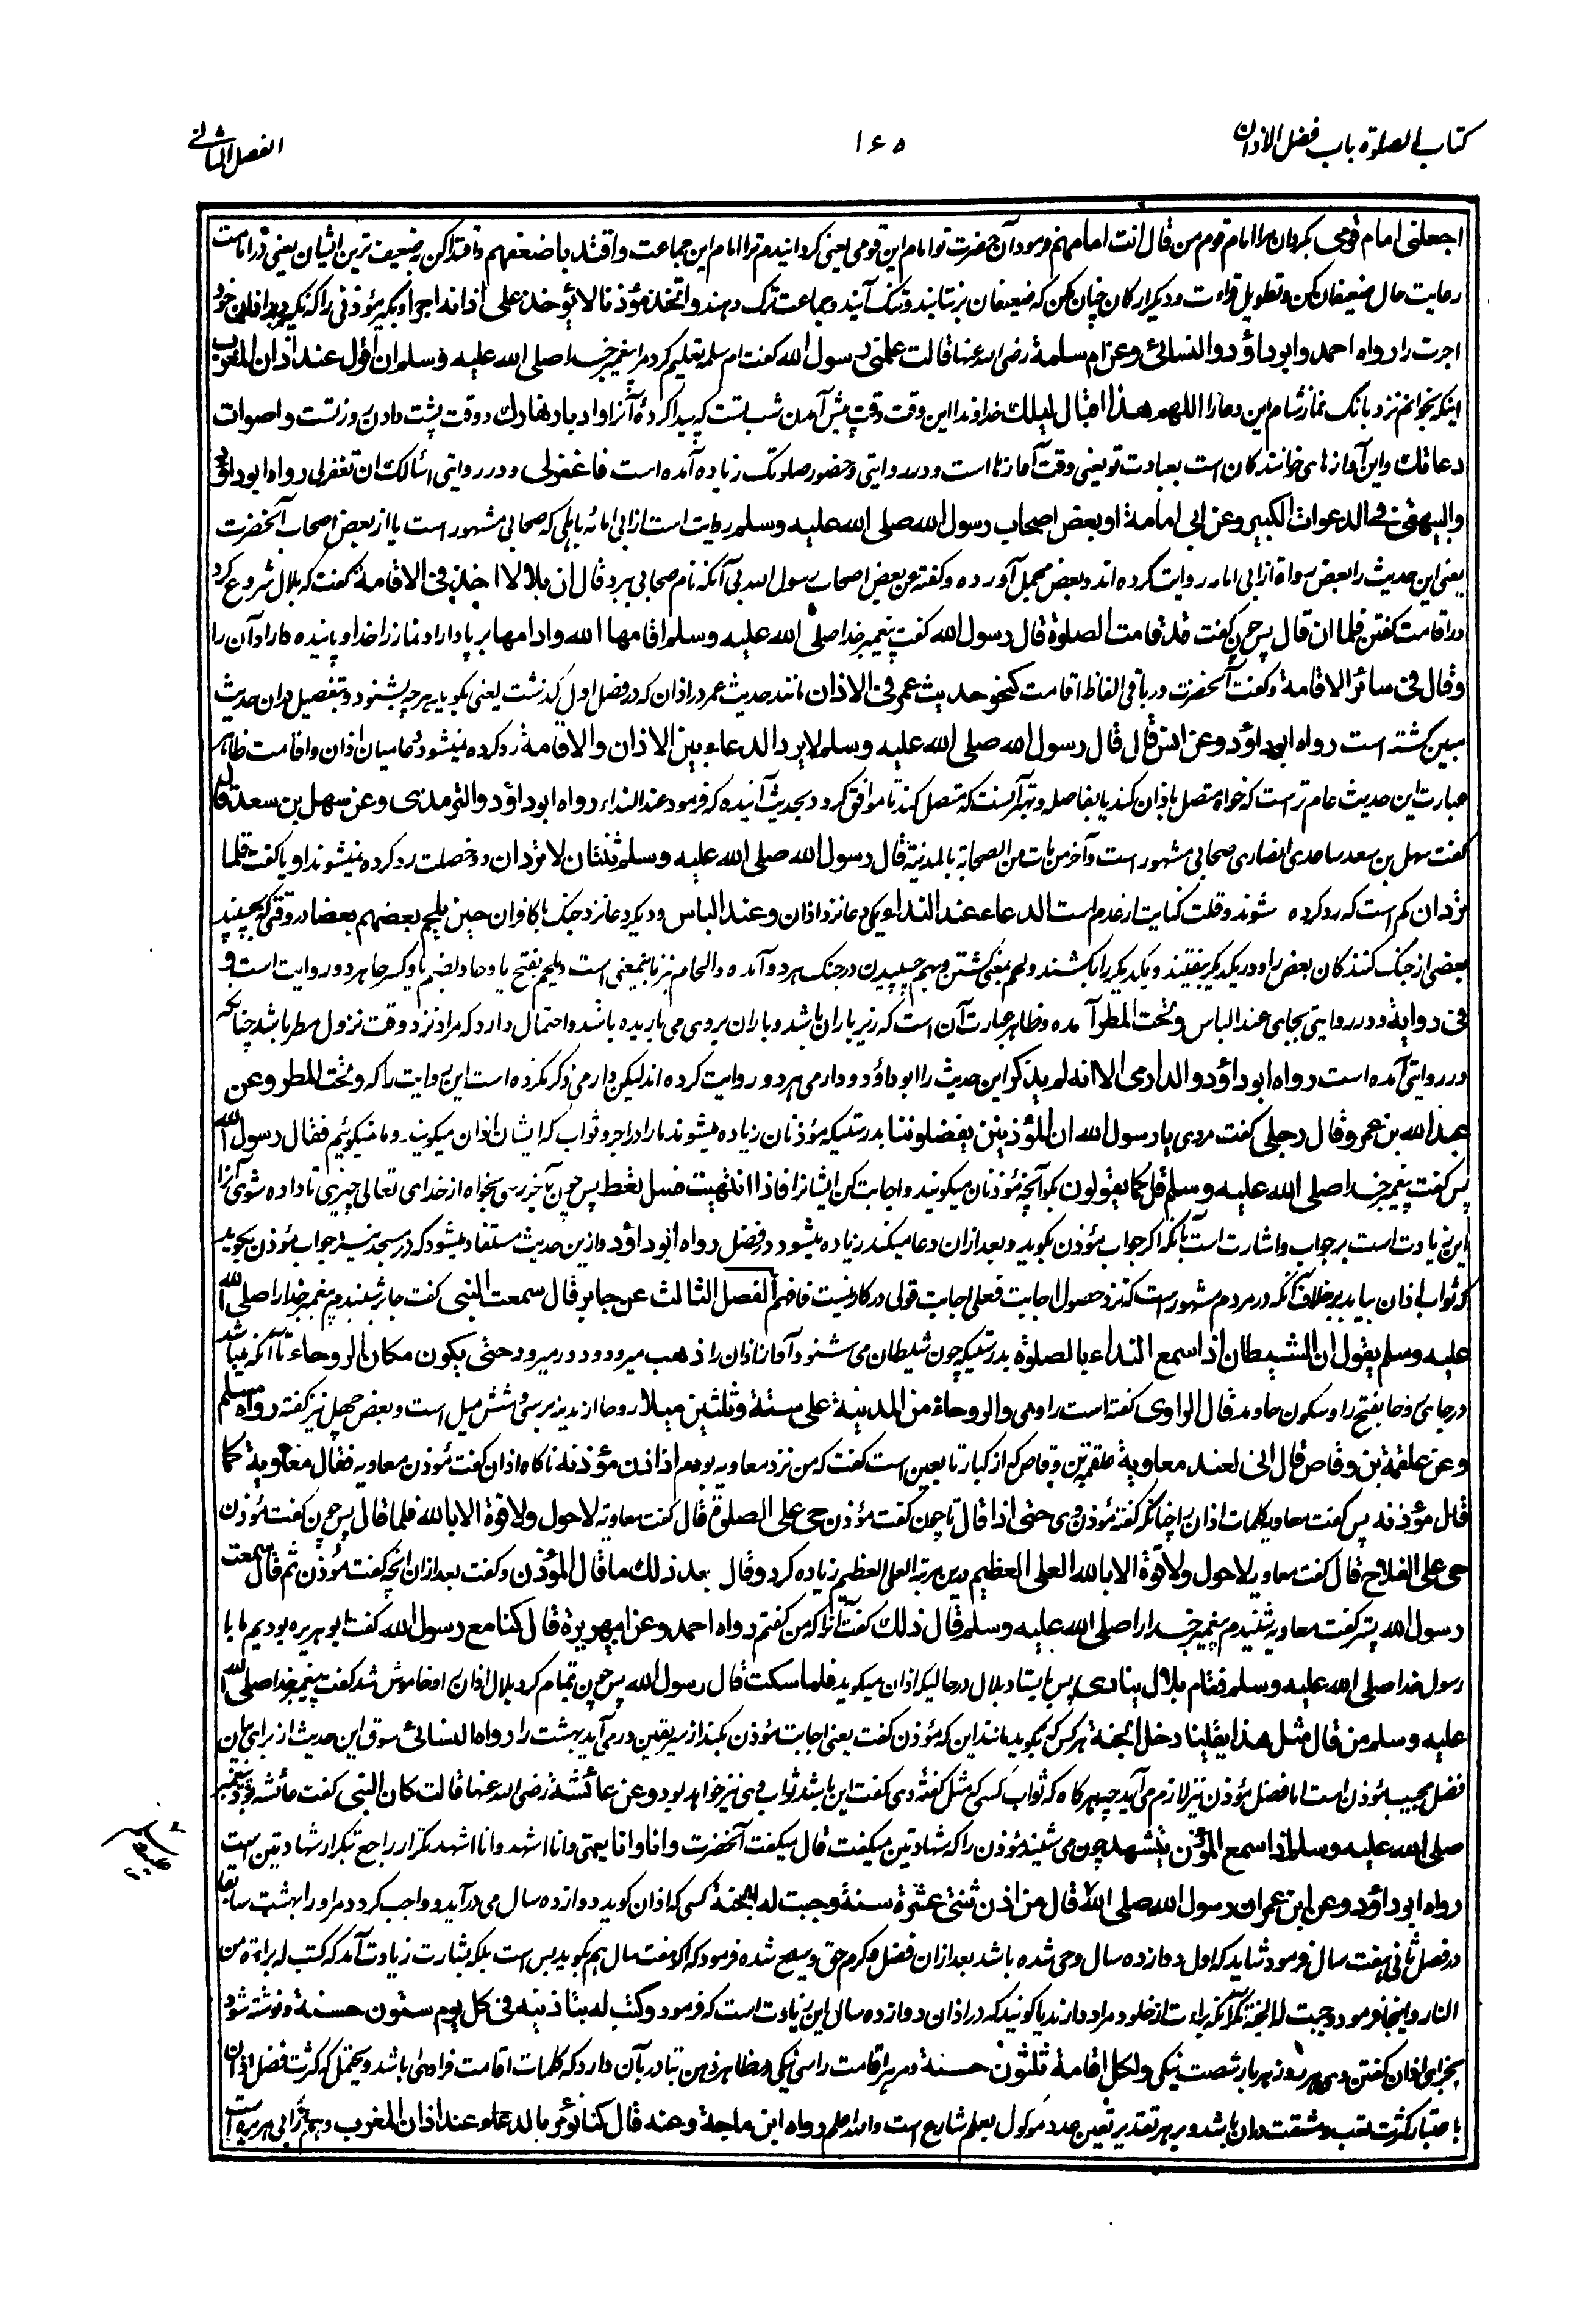 كتاب الصلوة باب فضل الاذان
١٦٥
الفصل الثاني
اجعلنی امام قومی بگردان مرا امام قوم من قال انت امامهم فرمود آن حضرت تو امام این قومی یعنی گردانیدم ترا امام این جماعت واقتد باضعفهم واقتدا کن بضعیف ترین ایشان یعنی در امامت
رعایت حال ضعیفان کن و تطویل قراءت و دیگر ارکان چنان مکن که ضعیفان بر نتابند و تنگ آیند و جماعت ترک دهند واتخذ مؤذنا لا يأخذ على اذانه اجرا و بگیر مؤذنی را که نگیرد بر اذان خود
اجرت را رواه احمد وابوداؤد والنسائی وعن ام سلمة رضی الله عنها قالت علمنی رسول الله گفت ام سلمه تعلیم کرد مرا پیغمبر خدا صلى الله عليه وسلم ان اقول عند اذان المغرب
اینکه بخوانم نزد بانگ نماز شام این دعا را اللهم هذا اقبال ليلك خداوندا این وقت وقت پیش آمدن شب تست که پیدا کردهٔ آنرا وادبار نهارك و وقت پشت دادن روز تست واصوات
دعاتك و این آوازهای خوانندگان است بعبادت تو یعنی وقت آمازنها است و در روایتی وحضور صلوتک زیاده آمده است فاغفرلی و در روایتی اسألك ان تغفرلی رواه ابوداؤد
والبيهقی فی الدعوات الكبير وعن ابی امامة او بعض اصحاب رسول الله صلى الله عليه وسلم روایت است از ابی امامه باهلی که صحابی مشهور است یا از بعض اصحاب آنحضرت
یعنی این حدیث را بعض رواة از ابی امامه روایت کرده اند و بعض مجمل آورده و گفته عن بعض اصحاب رسول الله بی آنکه نام صحابی ببرد قال ان بلالا اخذ فی الاقامة گفت که بلال شروع کرد
در اقامت گفتن فلما ان قال پس چون گفت قد قامت الصلوة قال رسول الله گفت پیغمبر خدا صلى الله عليه وسلم اقامها الله وادامها بر پا داراد نماز را خدا و پاینده داراد آن را
وقال فی سائر الاقامة و گفت آنحضرت در باقی الفاظ اقامت كنحو حديث عمر فی الاذان مانند حدیث عمر در اذان که در فصل اول گذشت یعنی بگوید هر چه بشنود و تفصیل در آن حدیث
مبین گشته است رواه ابوداؤد وعن انس قال قال رسول الله صلى الله عليه وسلم لا يرد الدعاء بين الاذان والاقامة رد کرده نمیشود دعا میان اذان و اقامت ظاهر
عبارت این حدیث عام تر است که خواه متصل باذان کند یا بفاصله و بهتر آنست که متصل کند تا موافق گردد بحدیث آینده که فرمود عند النداء رواه ابوداؤد والترمذی وعن سهل بن سعد قال
گفت سهل بن سعد ساعدی انصاری صحابی مشهور است وآخر من مات من الصحابة بالمدينة قال رسول الله صلى الله عليه وسلم ثنتان لا تردان دو خصلت رد کرده نمیشوند او یا گفت قلما
تردان کم است که رد کرده شوند و قلت کنایت از عدم است الدعاء عند النداء یکی دعا نزد اذان وعند الباس و دیگر دعا نزد جنگ با کافران حين يلحم بعضهم بعضا در وقتی که بچسپند
بعضی از جنگ کنندگان بعض را و در یکدیگر بیفتند و یکدیگر را بکشند و لحم بمعنی کشتن و بهم چسپیدن در جنگ هر دو آمده والحام نیز باینمعنی است و یلحم بفتح یا و حا و بضم یا و کسر حا هر دو روایت است و
فی رواية و در روایتی بجای عند الباس وتحت المطر آمده و ظاهر عبارت آن است که زیر باران باشد و باران بروی می باریده باشد و احتمال دارد که مراد نزد وقت نزول مطر باشد چنانکه
در روایتی آمده است رواه ابوداؤد والدارمی الا انه لم يذكر این حدیث را ابوداؤد و دارمی هر دو روایت کرده اند لیکن دارمی ذکر نکرده است این روایت را که وتحت المطر وعن
عبد الله بن عمرو قال رجل گفت مردی يا رسول الله ان المؤذنين يفضلوننا بدرستیکه مؤذنان زیاده میشوند ما را در اجر و ثواب که ایشان اذان میگویند و ما نمیگوئیم فقال رسول الله
پس گفت پیغمبر خدا صلى الله عليه وسلم قل كما يقولون بگو آنچه مؤذنان میگویند و اجابت کن ایشانرا فاذا انتهيت فسل تعط پس چون بآخر رسی بخواه از خدای تعالی چیزی تا داده شوی آنرا
این زیادت است بر جواب و اشارت است بآنکه اگر جواب مؤذن بگوید و بعد ازان دعا میکند زیاده میشود در فضل رواه ابوداؤد و ازین حدیث مستفاد میشود که در مسجد نیز جواب مؤذن بگوید
که ثواب اذان بیابد بر خلاف آنکه در مردم مشهور است که نزد حصول اجابت فعلی اجابت قولی در کار نیست فافهم الفصل الثالث عن جابر قال سمعت النبی گفت جابر شنیدم پیغمبر خدا را صلى الله
عليه وسلم يقول ان الشيطان اذا سمع النداء بالصلوة بدرستیکه چون شیطان می شنود آواز اذان را ذهب میرود و دور میرود حتى يكون مكان الروحاء تا آنکه میباشد
در جای روحا بفتح را و سکون حا و مد قال الراوی گفته است راوی والروحاء من المدينة على ستة وثلثين ميلا روحا از مدینه بر سی و شش میل است و بعض چهل نیز گفته رواه مسلم
وعن علقمة بن وقاص قال انی لعند معاوية علقمه بن وقاص که از کبار تابعین است گفت که من نزد معاویه بودم اذ اذن مؤذنه ناگاه اذان گفت مؤذن معاویه فقال معاوية كما
قال مؤذنه پس گفت معاویه کلمات اذان را چنانکه گفته مؤذن وی حتى اذا قال تا چون گفت مؤذن حی على الصلوة قال گفت معاویه لا حول ولا قوة الا بالله فلما قال پس چون گفت مؤذن
حی على الفلاح قال گفت معاویه لا حول ولا قوة الا بالله العلی العظيم درین مرتبه العلی العظیم زیاده کرد وقال بعد ذلك ما قال المؤذن و گفت بعد ازان آنچه گفت مؤذن ثم قال سمعت
رسول الله پستر گفت معاویه شنیدم پیغمبر خدا را صلى الله عليه وسلم قال ذلك گفت آنرا که من گفتم رواه احمد وعن ابی هريرة قال كنا مع رسول الله گفت ابو هریره بودیم ما با
رسول خدا صلى الله عليه وسلم فقام بلال ينادی پس بایستاد بلال در حالیکه اذان میگوید فلما سكت قال رسول الله پس چون تمام کرد بلال اذان را و خاموش شد گفت پیغمبر خدا صلى الله
عليه وسلم من قال مثل هذا يقينا دخل الجنة هر کس که بگوید مانند این که مؤذن گفت یعنی اجابت مؤذن بکند از سر یقین در می آید بهشت را رواه النسائی سوق این حدیث از برای بیان
فضل مجیب مؤذن است اما فضل مؤذن نیز لازم می آید چه هرگاه که ثواب کسی که مثل گفتهٔ وی گفت این باشد ثواب وی نیز خواهد بود وعن عائشة رضی الله عنها قالت كان النبی گفت عائشه بود پیغمبر
صلى الله عليه وسلم اذا سمع المؤذن يتشهد چون می شنید مؤذن را که شهادتین میگفت قال میگفت آنحضرت وانا وانا یعنی وانا اشهد وانا اشهد تکرار راجع بتکرار شهادتین ست
رواه ابوداؤد وعن ابن عمر ان رسول الله صلى الله قال من اذن ثنتی عشرة سنة وجبت له الجنة کسی که اذان گوید دوازده سال می درآید و واجب گردد مر او را بهشت سابقا
در فصل ثانی هفت سال فرمود شاید که اول دوازده سال وحی شده باشد بعد ازان فضل و کرم حق وسیع شده فرمود که اگر هفت سال هم بگوید بس است بلکه بشارت زیادت آمد که کتب له براءة من
النار و اینجا فرمود وجبت له الجنة مگر آنکه براءت از خلود مراد دارند یا گویند که در اذان دوازده سال این زیادت است که فرمود وكتب له بتاذينه فی كل يوم ستون حسنة و نوشته شود
بجزای اذان گفتن وی هر روز هر بار شصت نیکی ولكل اقامة ثلثون حسنة و مر هر اقامت را سی نیکی و ظاهر ذهن تبادر بآن دارد که کلمات اقامت فرادی باشد و یحتمل که کثرت فضل اذان
باعتبار کثرت تعب و مشقت دران باشد و بر هر تقدیر تعین عدد موکول بعلم شارع است والله اعلم رواه ابن ماجة وعنه قال كنا نؤمر بالدعاء عند اذان المغرب و هم از ابی هریره است